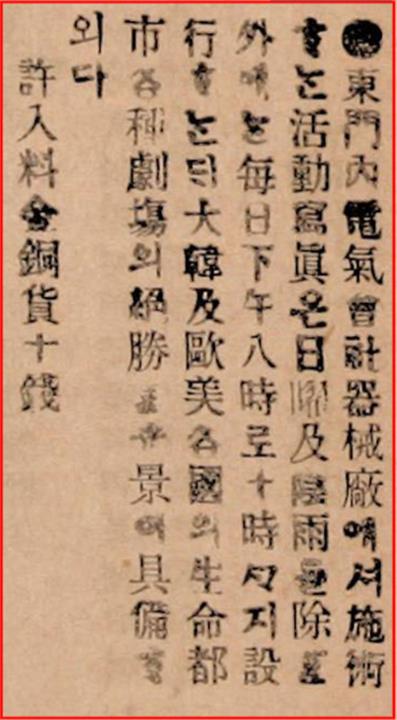 ●東門內電氣會社器械廠에셔施術
ᄒᆞ는活動寫眞은日曜及陰雨를除ᄒᆞᆫ
外에는每日下午八時로十時ᄭᆞ지設
行ᄒᆞ는듸大韓及歐美各國의生命都
市各種劇塲의絕勝ᄒᆞᆫ光景이具備ᄒᆞ
외다
許入料金銅貨十錢